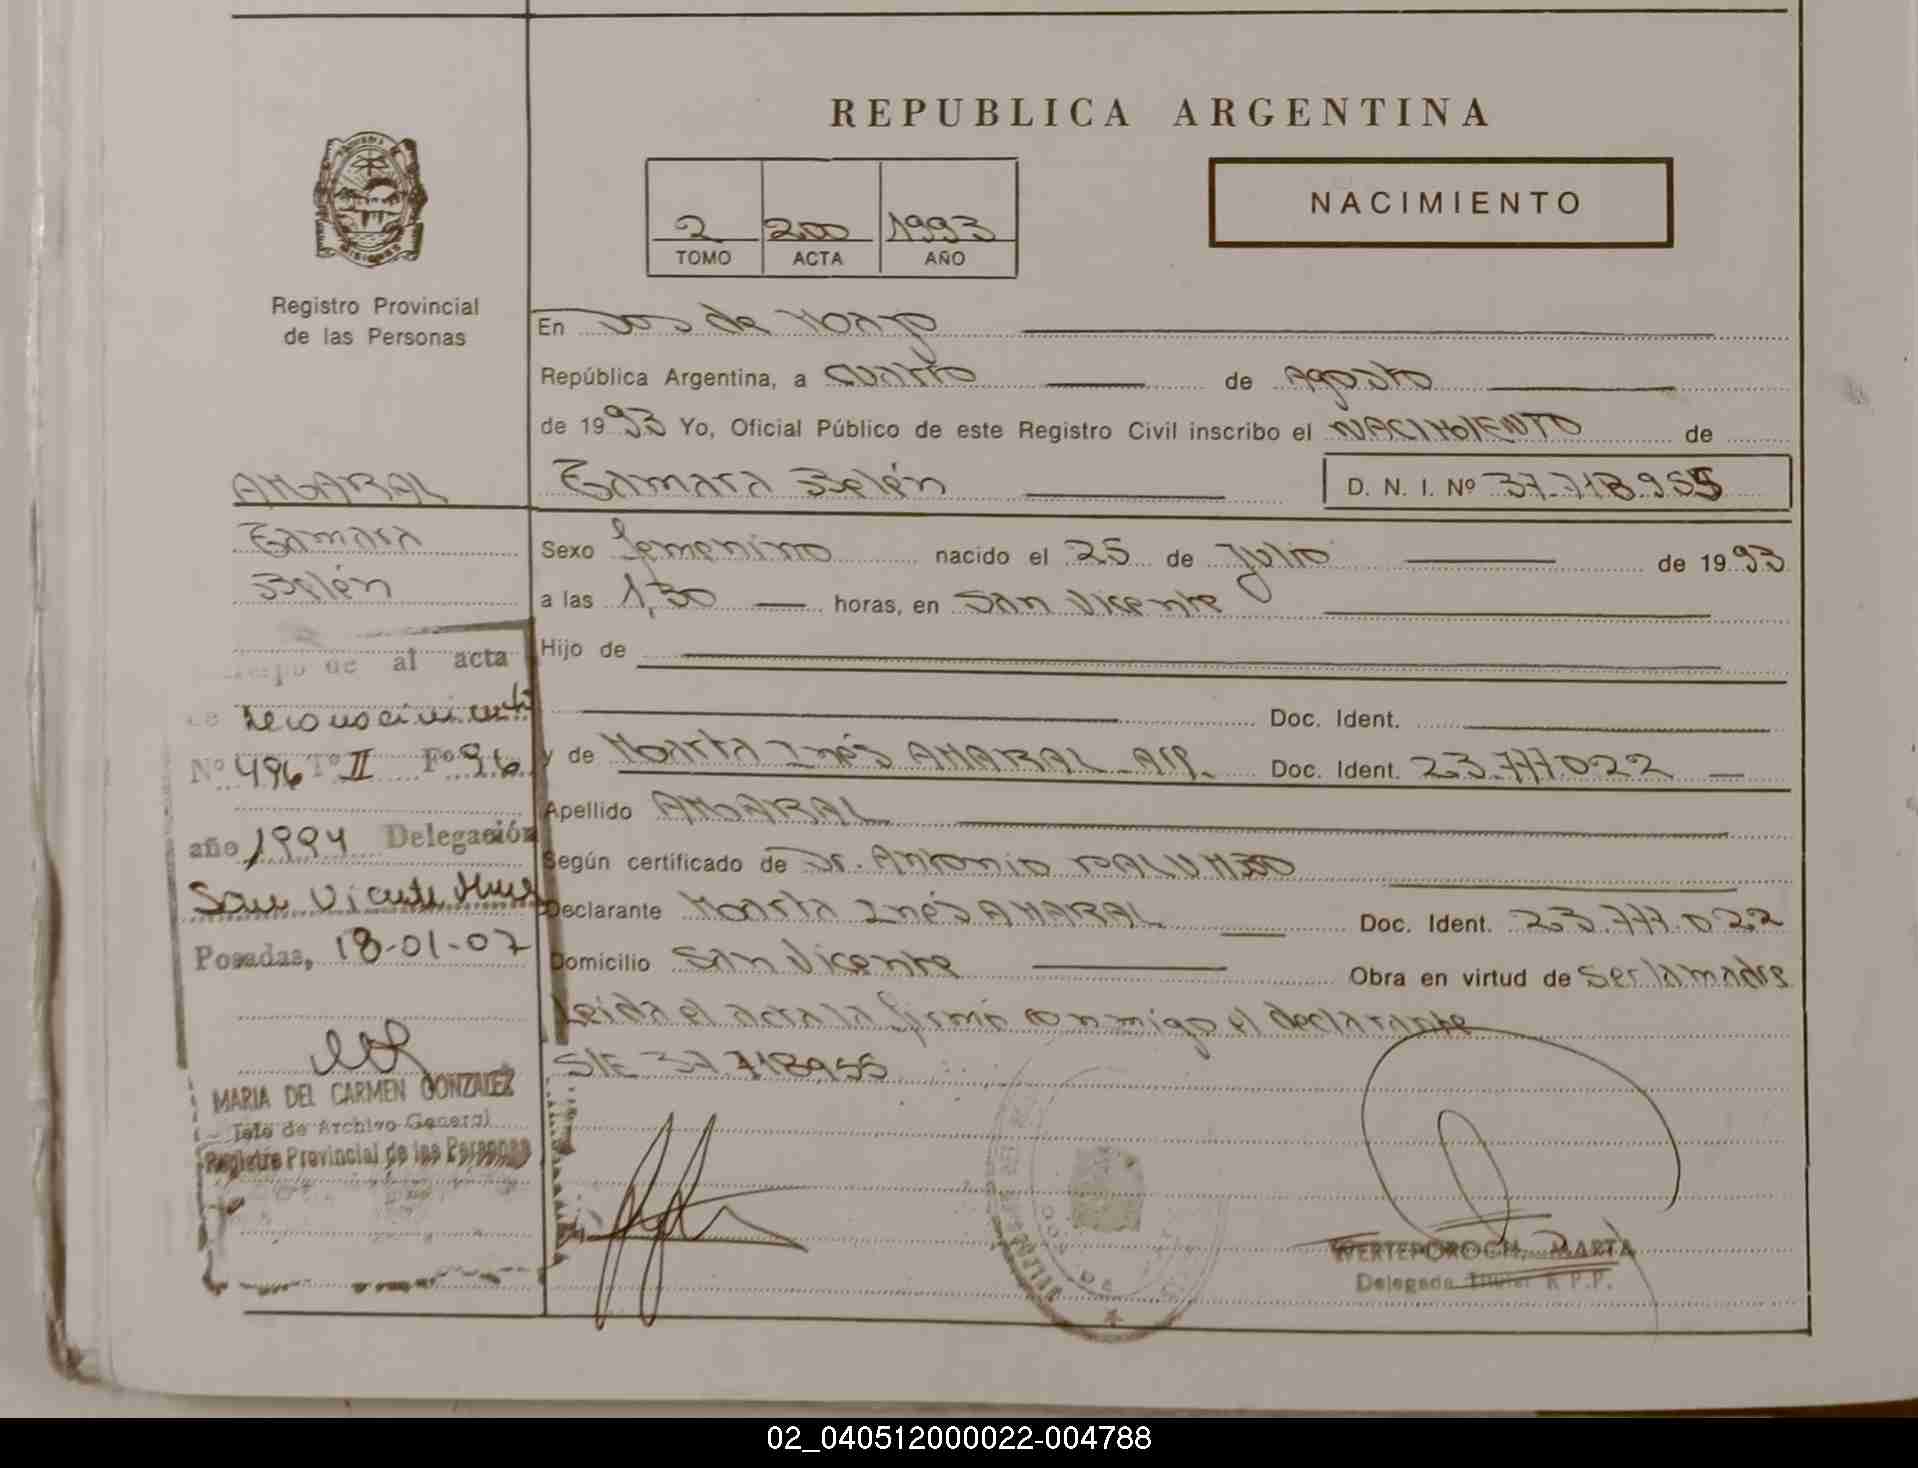 REPUBLICA ARGENTINA
NACIMIENTO
2 200 1993
TOMO ACTA AÑO
Registro Provincial
de las Personas
En Dos de Mayo
República Argentina, a cuatro de Agosto
de 1993 Yo, Oficial Público de este Registro Civil inscribo el NACIMIENTO de
AMARAL
Tamara Belén
D. N. I. Nº 37.718.955
Tamara
Belén
Sexo femenino nacido el 25 de Julio de 1993
a las 1,30 horas, en San Vicente
Hijo de
Doc. Ident.
y de Marta Inés AMARAL Doc. Ident. 23.777.022
Apellido AMARAL
Según certificado de Dr. Antonio PALUMBO
Declarante Marta Inés AMARAL Doc. Ident. 23.777.022
Domicilio San Vicente Obra en virtud de Ser la madre
Leida el acta la firmó conmigo el declarante
S/E 37.718955
al acta
de reconocimiento
Nº 496 Tº II Fº 96
año 1994 Delegación
San Vicente Mnes
Posadas, 18-01-07
MARIA DEL CARMEN GONZALEZ
Jefe de Archivo General
Registro Provincial de las Personas
WERTEPOROCH, MARTA
Delegada Titular R.P.P.
02_040512000022-004788